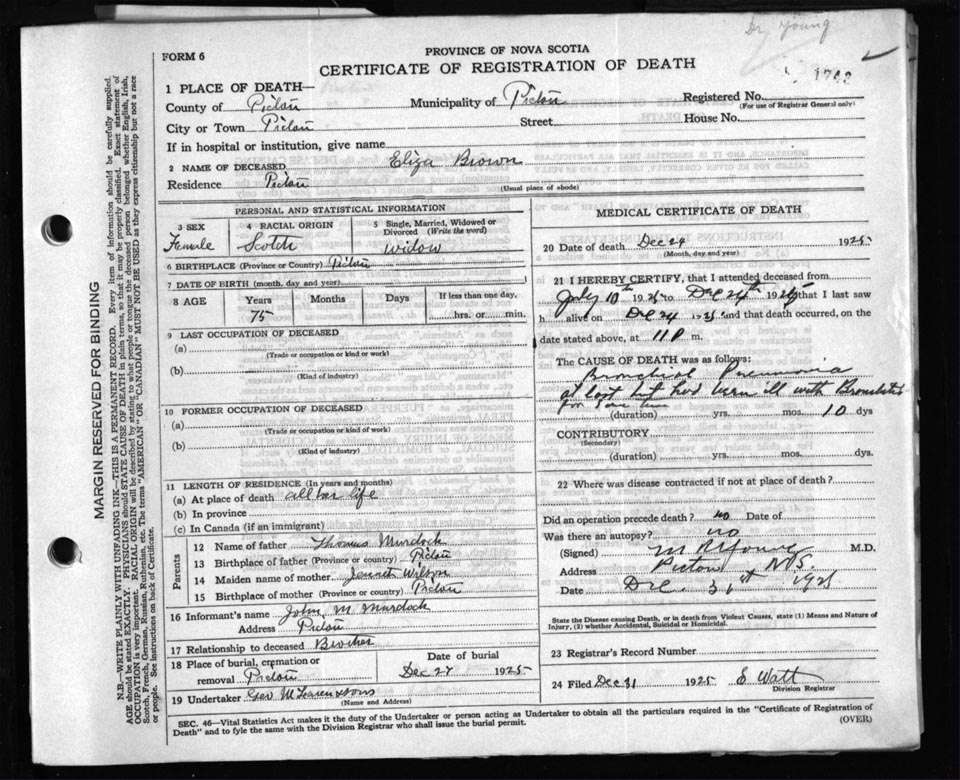 Dr Young
FORM 6
PROVINCE OF NOVA SCOTIA
CERTIFICATE OF REGISTRATION OF DEATH
1 PLACE OF DEATH—
County of Pictou Municipality of Pictou Registered No.
(For use of Registrar General only)
City or Town Pictou Street House No.
If in hospital or institution, give name
2 NAME OF DECEASED Eliza Brown
Residence Pictou
(Usual place of abode)
PERSONAL AND STATISTICAL INFORMATION
3 SEX 4 RACIAL ORIGIN 5 Single, Married, Widowed or Divorced (Write the word)
Female Scotch widow
6 BIRTHPLACE (Province or Country) Pictou
7 DATE OF BIRTH (month, day and year)
8 AGE Years Months Days If less than one day,
75 hrs. or min.
9 LAST OCCUPATION OF DECEASED
(a)
(Trade or occupation or kind or work)
(b)
(Kind of industry)
10 FORMER OCCUPATION OF DECEASED
(a)
(Trade or occupation or kind of work)
(b)
(Kind of industry)
11 LENGTH OF RESIDENCE (In years and months)
(a) At place of death all her life
(b) In province
(c) In Canada (if an immigrant)
Parents
12 Name of father Thomas Murdock
13 Birthplace of father (Province or country) Pictou
14 Maiden name of mother Wilson
15 Birthplace of mother (Province or country) Pictou
16 Informant's name John M Murdock
Address Pictou
17 Relationship to deceased Brother
18 Place of burial, cremation or removal Pictou
Date of burial
Dec 27 1925
19 Undertaker Geo & sons
(Name and Address)
MEDICAL CERTIFICATE OF DEATH
20 Date of death Dec 24 1925
(Month, day and year)
21 I HEREBY CERTIFY, that I attended deceased from
July 10th 1925 to Dec 24th 1925 that I last saw
h alive on Dec 24 1925 and that death occurred, on the
date stated above, at 11 P m.
The CAUSE OF DEATH was as follows:
Bronchial Pneumonia
at last but had been ill with Bronchitis
for some time
(duration) yrs. mos. 10 dys
CONTRIBUTORY
(Secondary)
(duration) yrs. mos. dys.
22 Where was disease contracted if not at place of death?
Did an operation precede death? no Date of
Was there an autopsy? no
(Signed) Young M.D.
Address Pictou N.S.
Date Dec. 31st 1925
State the Disease causing Death, or in death from Violent Causes, state (1) Means and Nature of
Injury, (2) whether Accidental, Suicidal or Homicidal.
23 Registrar's Record Number
24 Filed Dec 31 1925 E Watt
Division Registrar
SEC. 46—Vital Statistics Act makes it the duty of the Undertaker or person acting as Undertaker to obtain all the particulars required in the "Certificate of Registration of
Death" and to fyle the same with the Division Registrar who shall issue the burial permit.
(OVER)
MARGIN RESERVED FOR BINDING
N.B.—WRITE PLAINLY WITH UNFADING INK—THIS IS A PERMANENT RECORD. Every item of information should be carefully supplied.
AGE should be stated EXACTLY. PHYSICIANS should STATE CAUSE OF DEATH in plain terms, so that it may be properly classified. Exact statement of
OCCUPATION is very important. RACIAL ORIGIN will be described by stating to what people or tongue the deceased person belonged whether English, Irish,
Scotch, French, German, Russian, Ruthenian, etc. The terms "AMERICAN" OR "CANADIAN" MUST NOT BE USED as they express citizenship but not a race
or people. See instructions on back of Certificate.